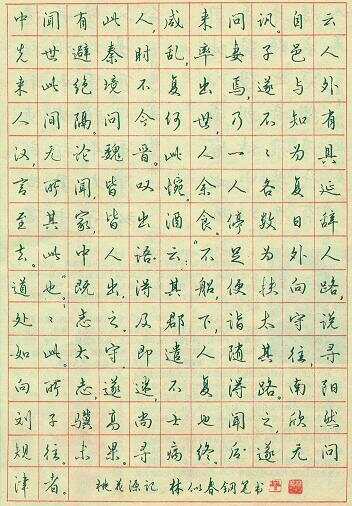 中闻有此人,咸来问讯。自云
先世避秦时乱,率妻子邑人
来此绝境,不复出焉,遂与外
人间隔。问今何世,乃不知有
汉,无论魏晋。此人一一为具
言所闻,皆叹惋。余人各复延
至其家,皆出酒食。停数日辞
去。此中人语云:“不足为外人
道也。”既出,得其船,便扶向路,
处处志之。及郡下,诣太守说
如此。太守即遣人随其往,寻
向所志,遂迷,不复得路。南阳
刘子骥高尚士也,闻之,欣然
规往。未果。寻病终。后遂无问
津者。 桃花源记 林似春钢笔书